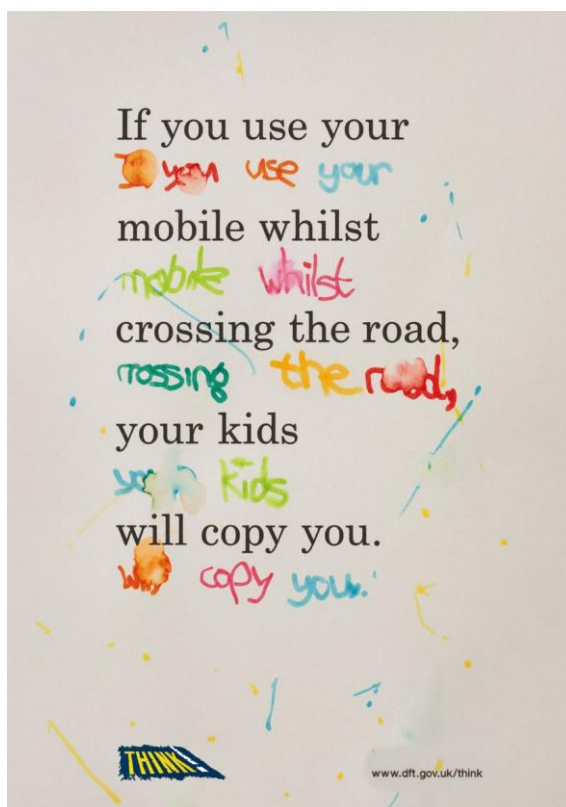 If you use your
you use your
mobile whilst
mobile whilst
crossing the road,
rossing the road,
your kids
kids
will copy you.
copy you.
THINK!
www.dft.gov.uk/think